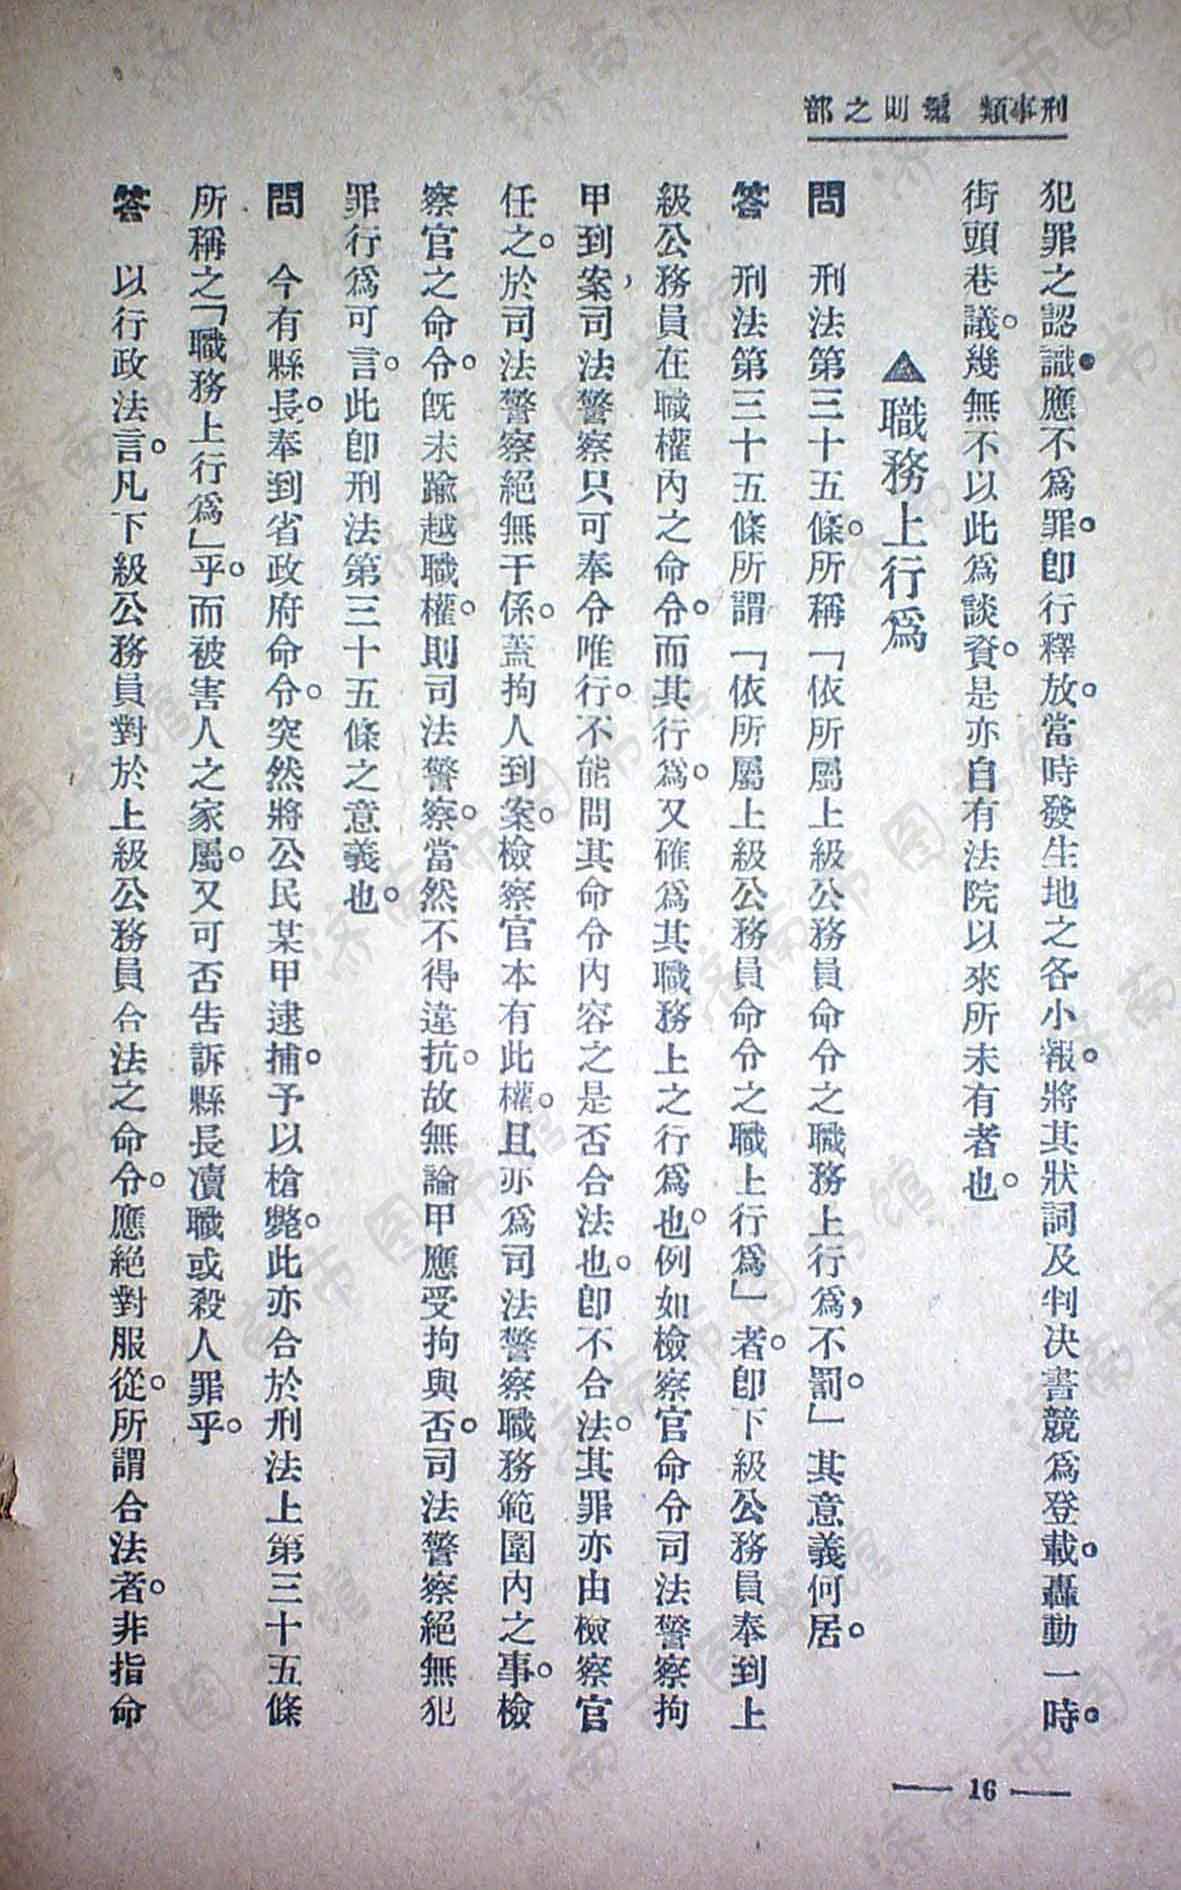 刑事類　總則之部
犯罪之認識。應不爲罪。卽行釋放。當時發生地之各小報。將其狀詞及判决書競爲登載。轟動一時。
街頭巷議。幾無不以此爲談資。是亦自有法院以來所未有者也。
▲職務上行爲
問　刑法第三十五條。所稱「依所屬上級公務員命令之職務上行爲，不罰。」其意義何居。
答　刑法第三十五條所謂「依所屬上級公務員命令之職上行爲」者。卽下級公務員奉到上
級公務員在職權內之命令。而其行爲。又確爲其職務上之行爲也。例如檢察官命令司法警察拘
甲到案，司法警察只可奉令唯行。不能問其命令內容之是否合法也。卽不合法。其罪亦由檢察官
任之。於司法警察絕無干係。蓋拘人到案。檢察官本有此權。且亦爲司法警察職務範圍內之事。檢
察官之命令。旣未踰越職權。則司法警察。當然不得違抗。故無論甲應受拘與否。司法警察絕無犯
罪行爲可言。此卽刑法第三十五條之意義也。
問　今有縣長。奉到省政府命令。突然將公民某甲逮捕。予以槍斃。此亦合於刑法上第三十五條
所稱之「職務上行爲」乎。而被害人之家屬。又可否告訴縣長瀆職或殺人罪乎。
答　以行政法言。凡下級公務員對於上級公務員合法之命令。應絕對服從。所謂合法者。非指命
— 16 —
济南市图书馆